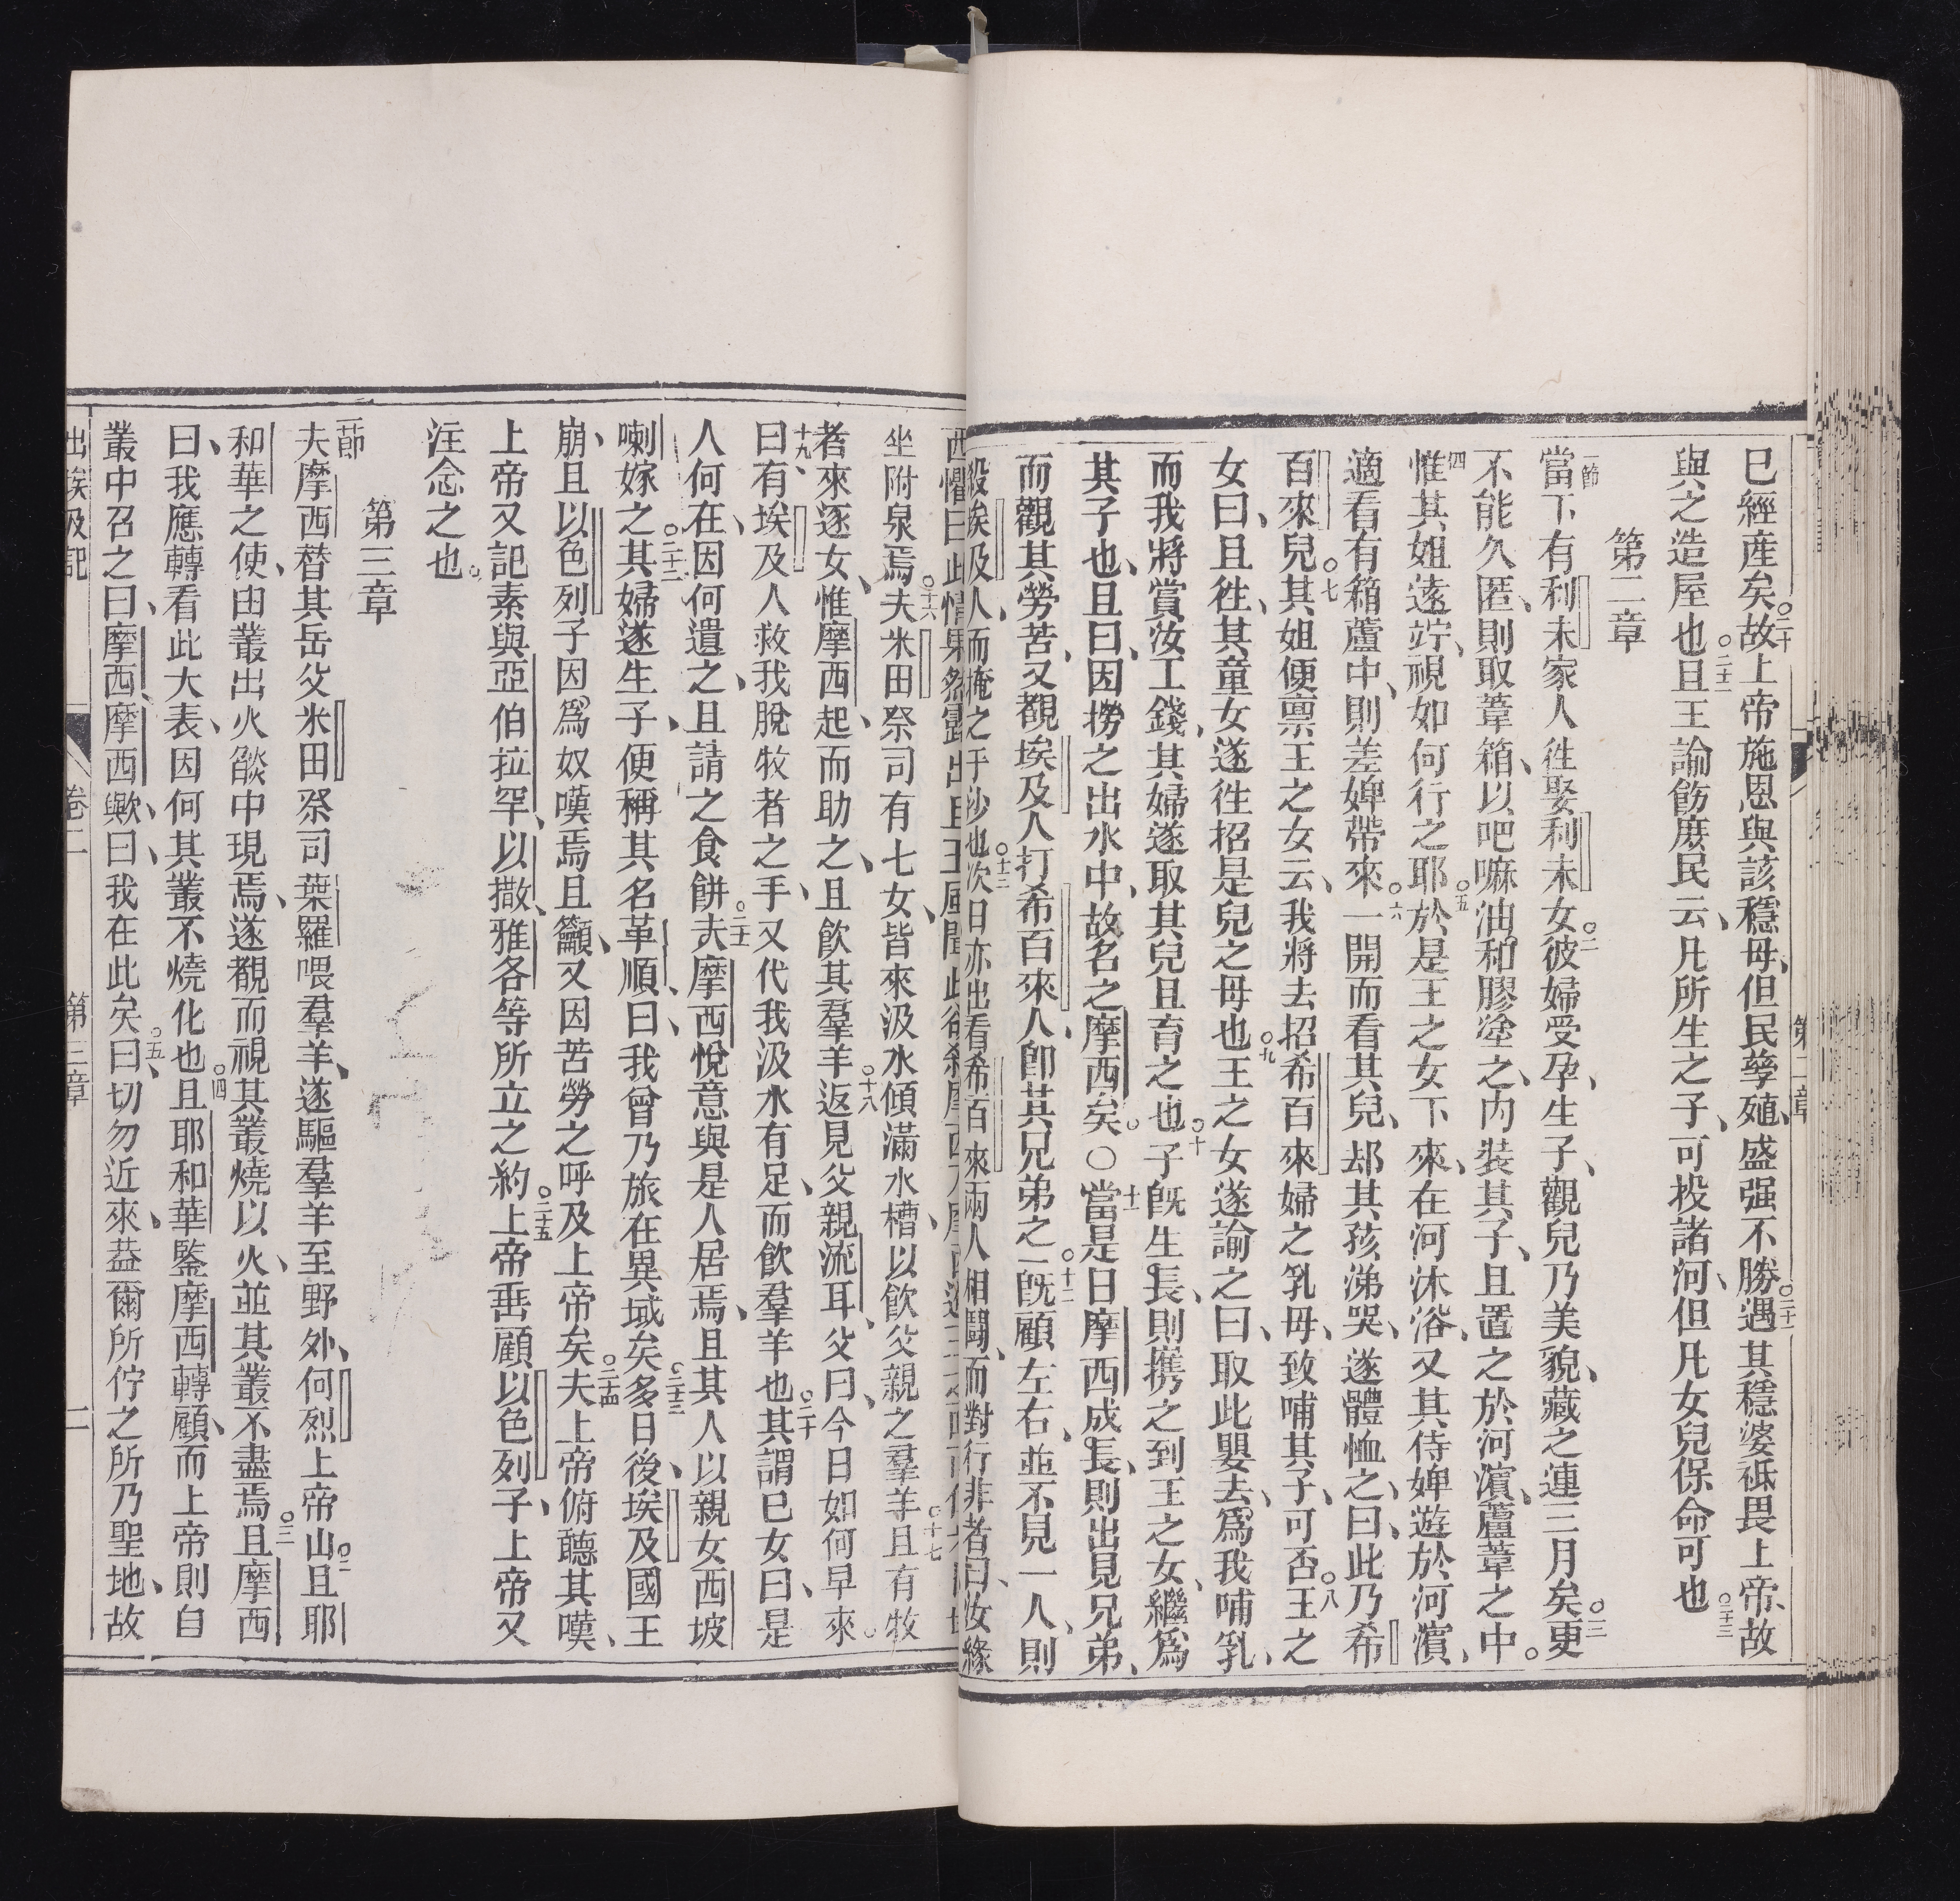 已經産矣○二十故上帝施恩與該穩母、但民孳殖、盛强不勝○二十一遇其穩婆祇畏上帝、故
與之造屋也○二十二且王諭飭庶民云、凡所生之子、可投諸河、但凡女兒保命可也
第二章
一節當下有利未家人徃娶利未女○二彼婦受孕、生子、觀兒乃美貌、藏之連三月矣○三更
不能久匿、則取葦箱、以吧嘛油和膠塗之、內裝其子、且置之於河濵蘆葦之中。
四惟其姐遠竚、視如何行之耶○五於是王之女下來、在河沐浴、又其侍婢遊於河濵、
適看有箱蘆中、則差婢帶來○六一開而看其兒、却其孩涕哭、遂體恤之、曰、此乃希
百來兒○七其姐便禀王之女云、我將去招希百來婦之乳母、致哺其子、可否○八王之
女曰、且徃、其童女遂徃招是兒之母也○九王之女遂諭之曰、取此嬰去、爲我哺乳、
而我將賞汝工錢、其婦遂取其兒且育之也○十子旣生長、則携之到王之女、繼爲
其子也、且曰、因撈之出水中、故名之摩西矣。〇十一當是日摩西成長、則出見兄弟、
而觀其勞苦、又覩埃及人打希百來人、卽其兄弟之一○十二旣顧左右、並不見一人、則
殺埃及人、而掩之于沙也○十三次日亦出看希百來兩人相鬪、而對行非者曰、汝緣
坐附泉焉○十六夫米田祭司有七女、皆來汲水傾滿水槽、以飲父親之羣羊○十七且有牧
者來逐女、惟摩西起、而助之、且飲其羣羊○十八返見父親流耳、父曰、今日如何早來。
十九曰、有埃及人救我脫牧者之手、又代我汲水有足、而飲羣羊也○二十其謂已女曰、是
人何在、因何遺之、且請之食餅○二十一夫摩西悅意與是人居焉、且其人以親女西坡
喇嫁之○二十二其婦遂生子、便稱其名革順、曰、我曾乃旅在異域矣○二十三多日後、埃及國王
崩、且以色列子因爲奴嘆焉且籲、又因苦勞之呼及上帝矣○二十四夫上帝俯聽其嘆、
上帝又記素與亞伯拉罕、以撒、雅各等所立之約○二十五上帝垂顧以色列子、上帝又
注念之也。
第三章
一節夫摩西替其岳父米田祭司葉羅喂羣羊、遂驅羣羊至野外、何烈上帝山○二且耶
和華之使、由叢出火燄中現焉、遂覩而視其叢燒以火、並其叢不盡焉○三且摩西
曰、我應轉看此大表、因何其叢不燒化也○四且耶和華鑒摩西轉顧、而上帝則自
叢中召之曰、摩西、摩西歟、曰、我在此矣○五曰、切勿近來、葢爾所佇之所乃聖地、故
出埃及記 卷二 第三章 二